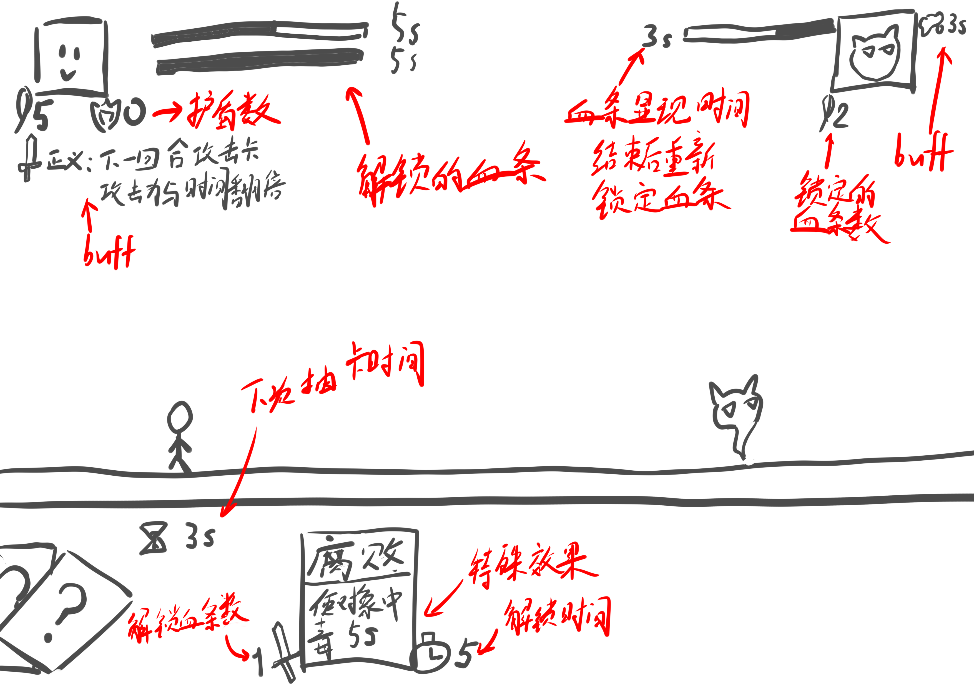 5s
5s
5
0
护盾数
正义:下一回合攻击卡
攻击力与时间翻倍
buff
解锁的血条
3s
3s
2
血条显现时间
结束后重新
锁定血条
锁定的
血条数
buff
下次抽卡时间
3s
?
?
解锁血条数
1
腐败
使对象中
毒5s
5
特殊效果
解锁时间